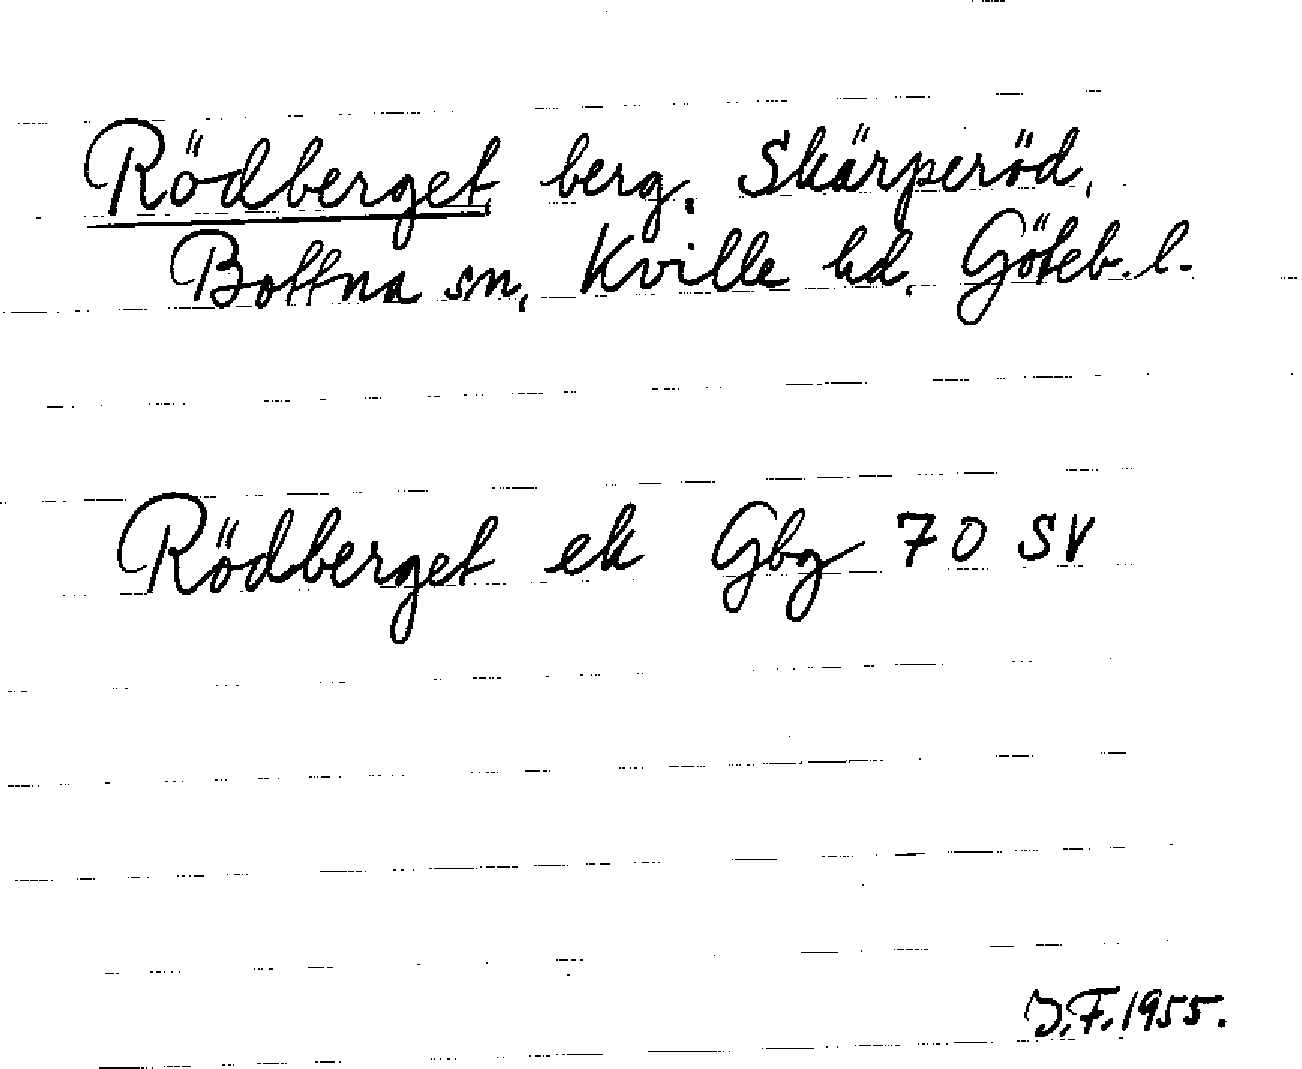 Rödberget, berg, Skärperöd,
Bottna sn, Kville hd, Göteb. l.
Rödberget ek Gbg 70 SV
J.F. 1955.